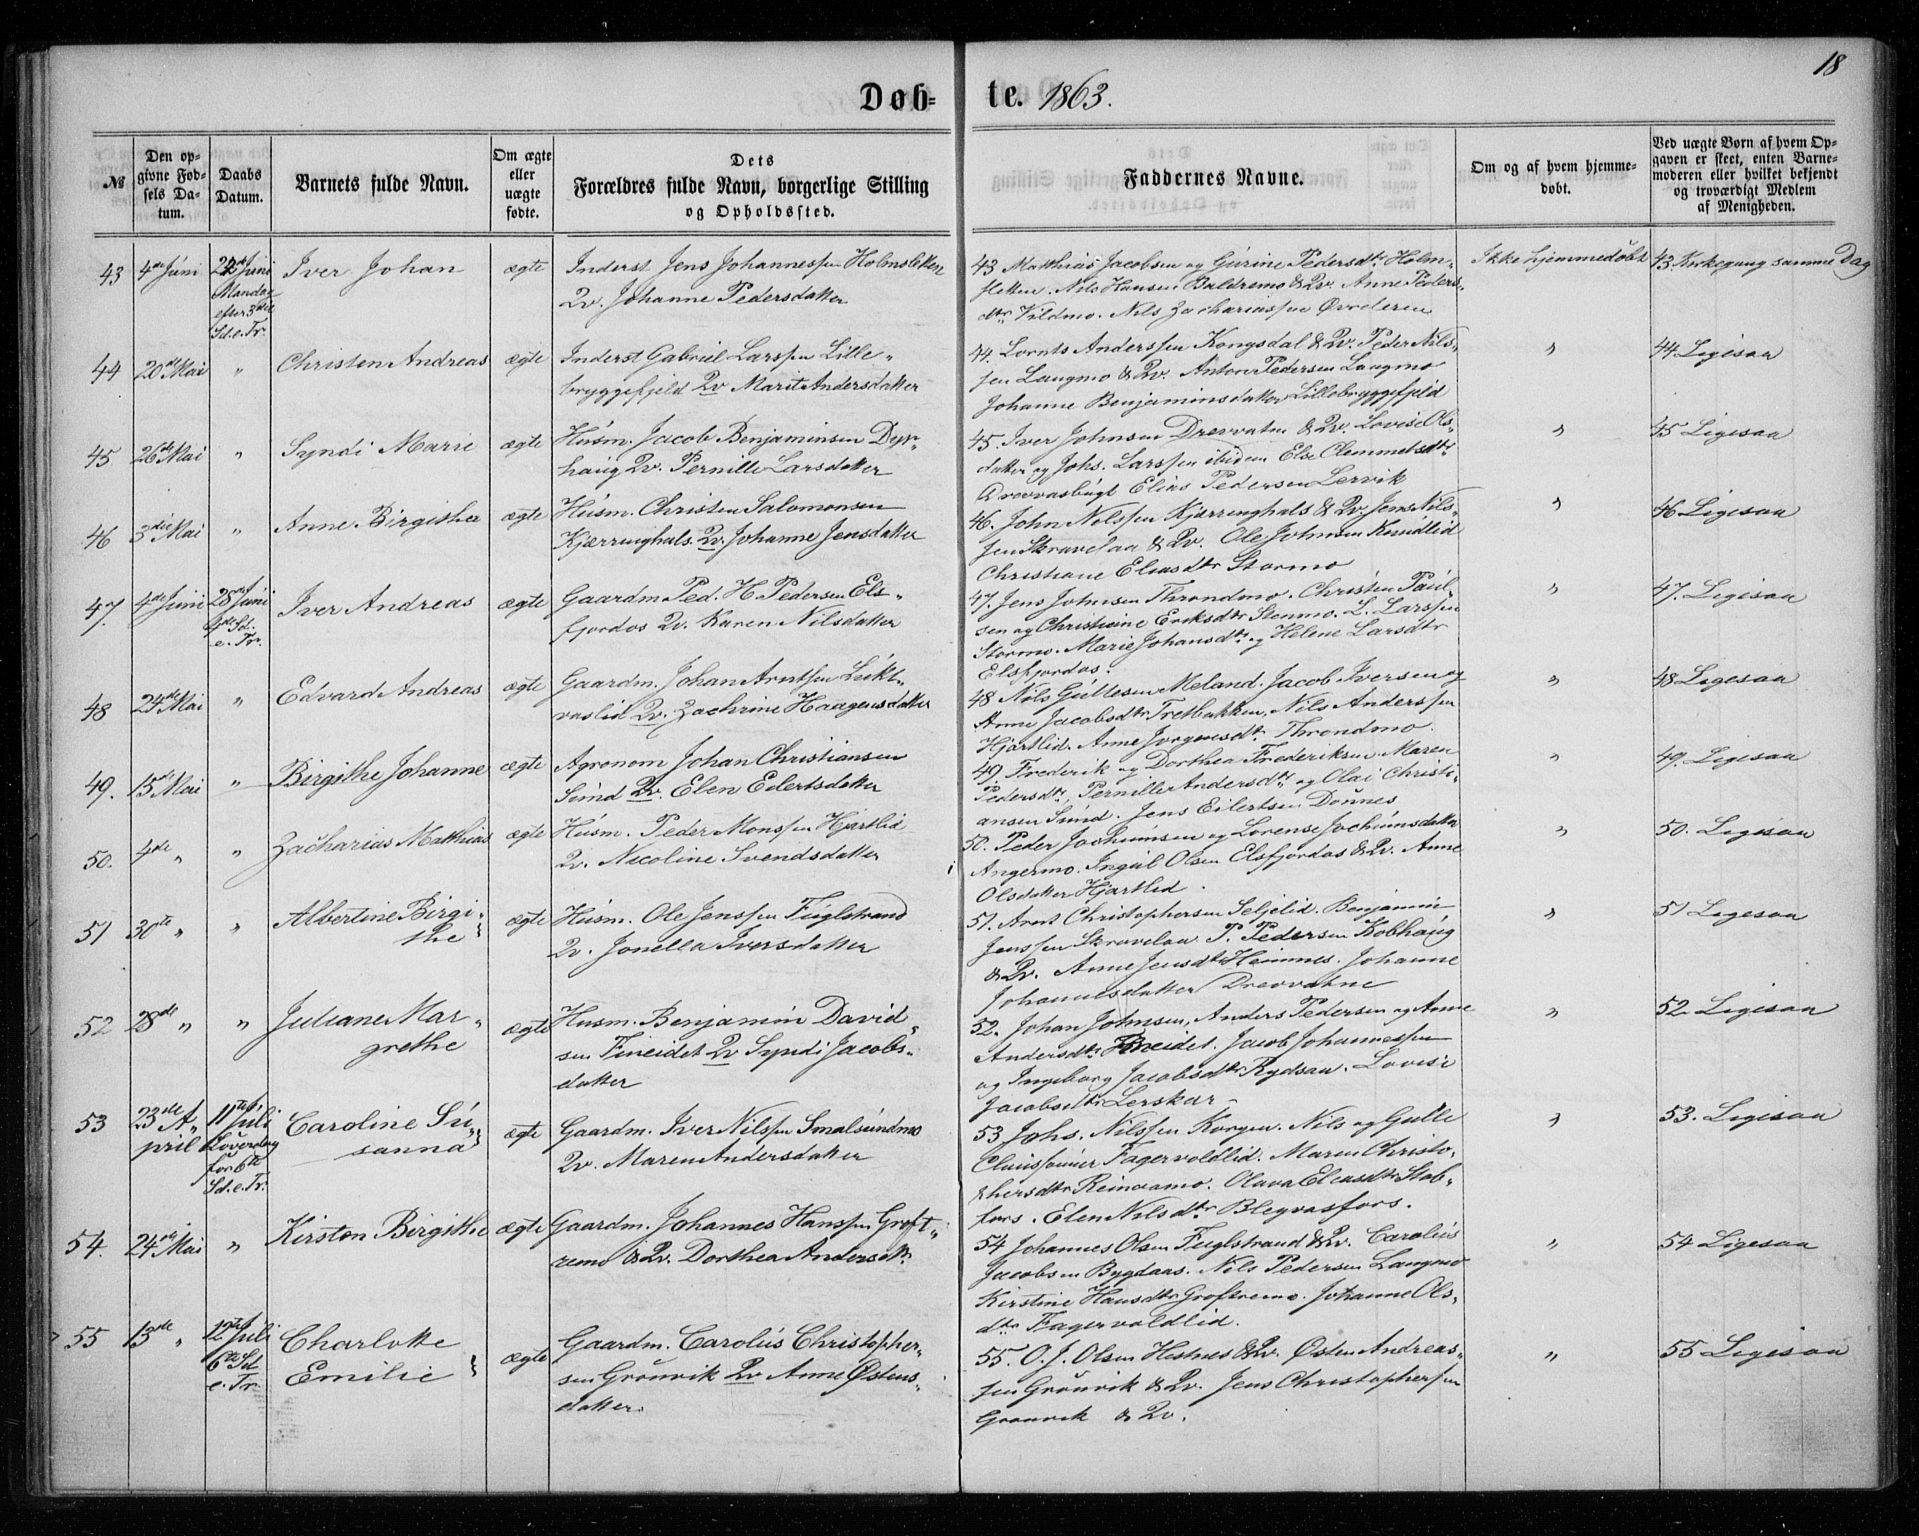 18
Døb- te. 1863.
№
Den op-
givne Fød-
sels Da-
tum.
Daabs
Datum.
Barnets fulde Navn.
Om ægte
eller
uægte
fødte.
Dets
Forældres fulde Navn, borgerlige Stilling
og Opholdssted.
Faddernes Navne.
Om og af hvem hjemme-
døbt.
Ved uægte Børn af hvem Op-
gaven er skeet, enten Barne-
moderen eller hvilket bekjendt
og troværdigt Medlem
af Menigheden.
43 4de Juni 22de Juni
Mandag
efter 3die
Sd. e. Tr.
Iver Johan ægte
Inderst Jens Johannessen Holmslettene
Qv. Johanne Pedersdatter
43 Matthias Jacobsen og Gurine Pedersdtr Holm-
sletten. Nils Hansen Baldremo & Qv. Anne Peders-
dtr Vildmo. Nils Zachariassen Øvrderen
Ikke hjemmedøbt 43 Kirkegang samme Dag
44 20de Mai " Christen Andreas ægte
Inderst Gabriel Larssen Lille-
bryggefjeld Qv Marit Andersdatter
44. Lornts Anderssen Kongsdal & Qv. Peder Nils-
sen Langmo & Qv. Anton Pedersen Langmo
Johanne Benjaminsdatter Lillebryggefjeld
" 44 Ligesaa
45 26de Mai " Syndi Marie ægte
Husm. Jacob Benjaminsen Dyr-
haug Qv. Pernille Larsdatter
45. Iver Johnsen Drevvatn & Qv. Lovise Ols-
datter og Johs. Larssen ibidem Else Clemmetsdtr
Drevvasbugt Elias Pedersen Lervik
" 45 Ligesaa
46 3die Mai " Anne Birgithe ægte
Husm. Christen Salomonsen
Kjærringhals Qv. Johanne Jensdatter
46. John Nilssen Kjærringhals & Qv. Jens Nils-
sen Skravelaa & Qv. Ole Johnsen Kvindlid
Christiane Eliasdtr Stormo
" 46 Ligesaa
47. 4de Juni 28de Juni
4de Sd.
e. Tr.
Iver Andreas ægte
Gaardm. Ped. H. Pedersen Els-
fjordos Qv. Karen Nilsdatter
47. Jens Johnsen Throndmo. Christen Paul-
sen og Christine Eriksdtr Stenmo. L. Larssen
Stormo. Marie Johansdtr og Helene Larsdtr
Elsfjordos.
" 47. Ligesaa
48 24de Mai " Edvard Andreas ægte
Gaardm. Johan Arntsen Lukt-
vaslid Qv. Zachrine Haagensdatter
48 Nils Gullesen Meland. Jacob Iversen og
Anne Jacobsdtr Tretbakken, Nils Anderssen
Hjartlid. Anne Jorgensdtr Throndmo.
" 48 Ligesaa
49. 15de Mai " Birgithe Johanne ægte
Agronom Johan Christiansen
Sund Qv. Elen Eilertsdatter
49 Frederik og Dorthea Frederiksen. Maren
Pedersdtr, Pernille Andersdtr og Olai Christi-
ansen Sund. Jens Eilertsen Dønnes
" 49. Ligesaa
50. 4de " " Zacharias Matthias ægte
Husm. Peder Monssen Hjartlid
Qv. Nicoline Svendsdatter
50. Peder Jochumsen og Lorense Jochumsdatter
Angermo. Ingul Olsen Elsfjordos & Qv. Anne
Olsdatter Hjartlid.
" 50. Ligesaa
51 30te " " Albertine Birgi-
the
ægte
Husm. Ole Jenssen Fuglstrand
Qv. Jonella Iversdatter
51. Arnt Christophersen Seljelid. Benjamin
Jenssen Skravelaa P. Pedersen Kobhaug
& Qv. Anne Jensdtr Hemmes. Johanne
Johannesdatter Drevvatne
" 51 Ligesaa
52 28de " " Juliane Mar-
grethe
ægte
Husm. Benjamin David-
sen Fineidet Qv Syndi Jacobs-
datter
52. Johan Johnsen, Anders Pedersen og Anne
Andersdtr Fineidet. Jacob Johannessen
og Ingeborg Jacobsdtr Rydsaa. Lovise
Jacobsdtr Lerskar -
" 52. Ligesaa
53 23de A-
pril
11te Juli
Løverdag
før 6te
Sd. e. Tr.
Caroline Su-
sanna
ægte
Gaardm. Iver Nilssen Smalsundmo
Qv. Maren Andersdatter
53 Johs. Nilssen Korgen. Nils og Gulle
Claussønner Fagervoldlid. Maren Christo-
phersdtr Reinaamo. Olava Eliasdtr Stab-
fors. Elen Nilsdtr Blegvasfors.
" 53. Ligesaa
54. 24de Mai " Kirsten Birgithe ægte
Gaardm. Johannes Hanssen Groft-
remo & Qv. Dorthea Andersdtr
54 Johannes Olsen Fuglstrand & Qv. Carolus
Jacobsen Bygdaas. Nils Pedersen Langmo
Kirstine Hansdtr Groftremo. Johanne Ols-
dtr Fagervoldlid.
" 54 Ligesaa
55 13de " 12te Juli
6te Sd.
e. Tr.
Charlotte
Emilie
ægte
Gaardm. Carolus Christopher-
sen Grønvik Qv Anne Østens-
datter.
55. O. J. Olsen Hestnes & Qv. Østen Andreas-
sen Grønvik & Qv. Jens Christophersen
Grønvik & Qv.
" 55 Ligesaa